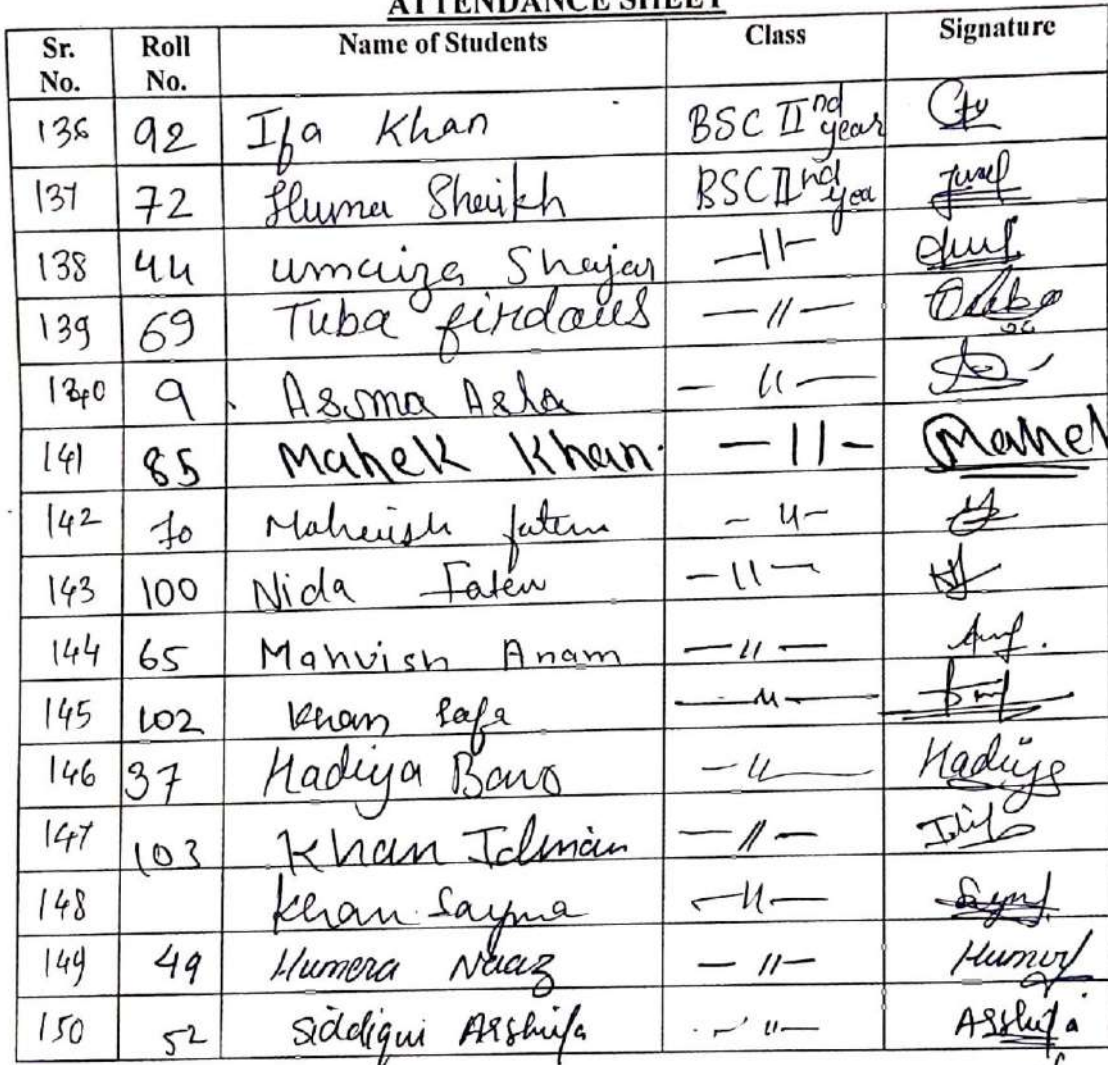 ATTENDANCE SHEET
Sr. No. Roll No. Name of Students Class Signature
136 92 Ifa Khan BSC IInd year
137 72 Huma Sheikh BSC IInd yea
138 44 umaiza Shajar —11—
139 69 Tuba firdous —11—
140 9 Asma Asla —11—
141 85 Mahek Khan. —11— Mahek
142 70 Mahevish fatem —11—
143 100 Nida Fatem —11—
144 65 Mahvish Anam —11—
145 102 Khan Safa —11—
146 37 Hadiya Bano —11— Hadiya
147 103 Khan Talman —11—
148 Khan Sayma —11—
149 49 Humera Naaz —11—
150 52 Siddiqui Arshifa —11— Arshifa